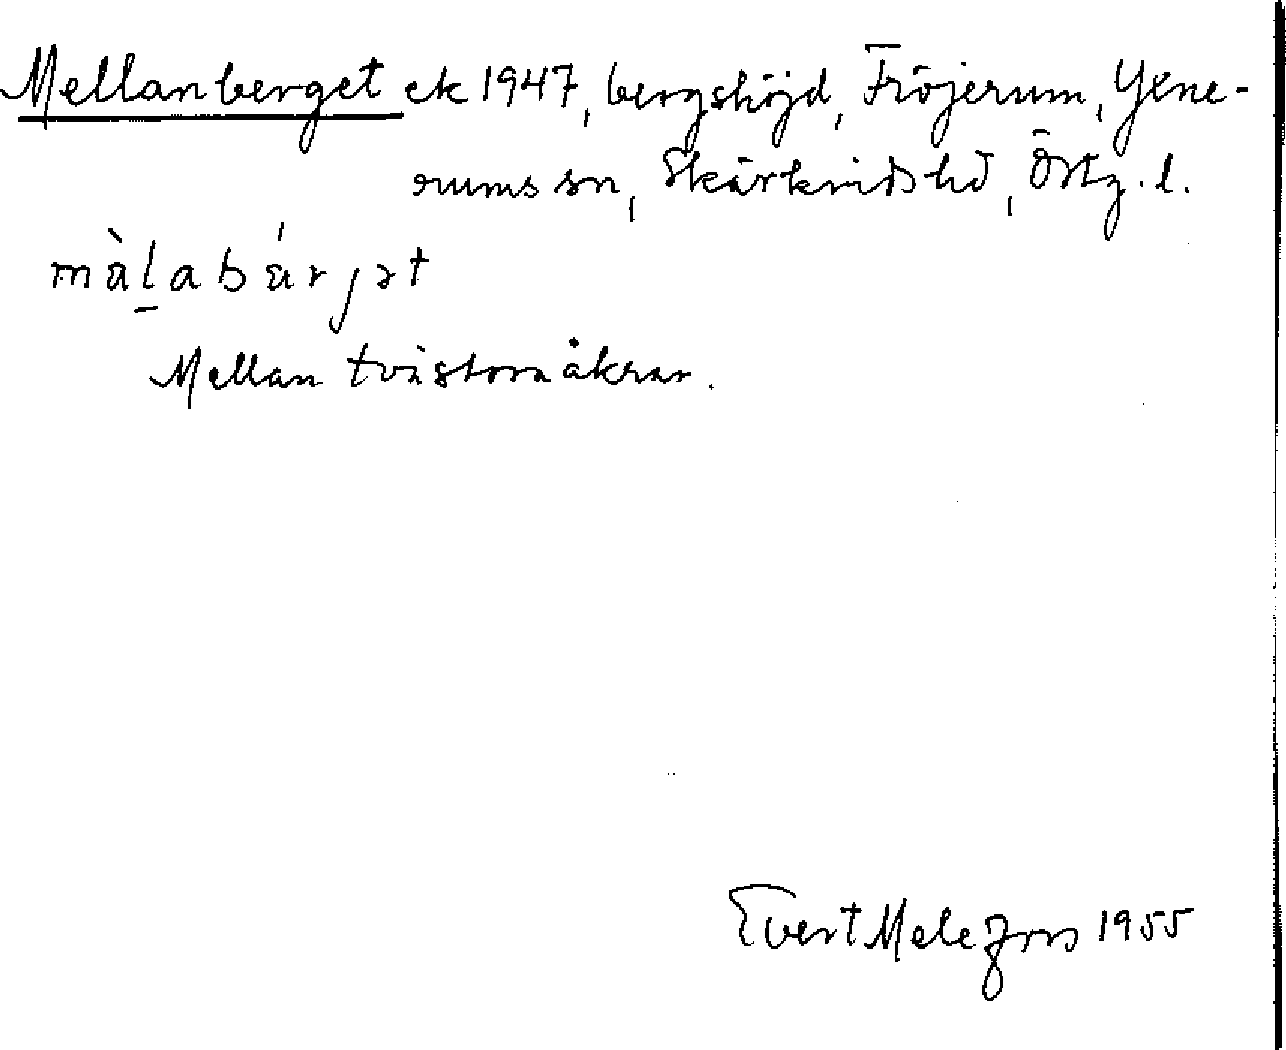 Mellanberget ek 1947, bergshöjd, Fröjerum, Yxne-
rums sn, Skärkinds hd, Östg. l.
màl̠abárjət
Mellan två stora åkrar.
Evert Melefors 1955